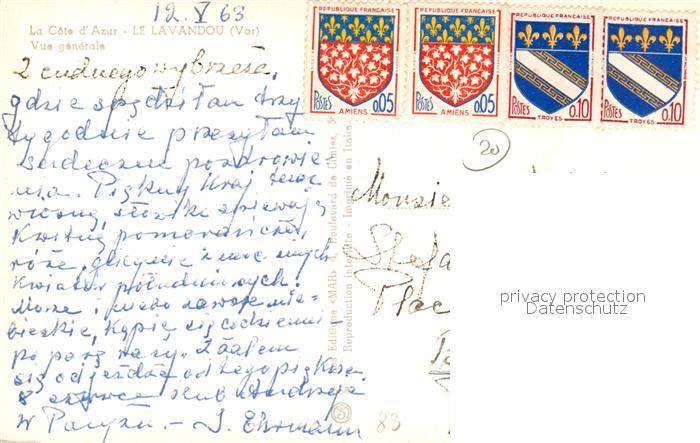 12. V 63
La Côte d'Azur - LE LAVANDOU (Var)
Vue générale
Z cudnego wybrzeża,
gdzie spędziłam trzy
tygodnie przesyłam
serdeczne pozdrowie-
nia. Piękny kraj teraz
wiosną, słowiki śpiewają
Kwitną pomarańcze,
róże, glicynie i moc innych
kwiatów południowych.
Morze i niebo zawsze nie-
bieskie, Kąpię się codziennie
po parę razy. Z żalem
się odjeżdża od tego piękna.
8 czerwca ślub Andrzeja
w Paryżu. - I. Ehrmann
REPUBLIQUE FRANÇAISE
POSTES 0,05
AMIENS
REPUBLIQUE FRANÇAISE
POSTES 0,05
AMIENS
REPUBLIQUE FRANÇAISE
POSTES 0.10
TROYES
REPUBLIQUE FRANÇAISE
POSTES 0.10
TROYES
20
Editions «MAR» Boulevard de Cimiez,
Reproduction interdite - Imprimé en Italie
Monsie
Stefa
Plac
83
privacy protection
Datenschutz